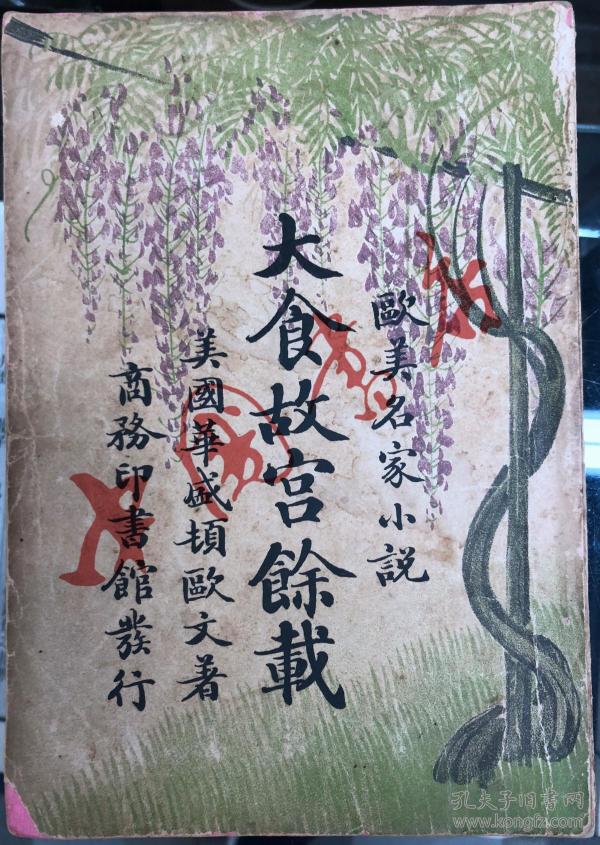 歐美名家小說
大食故宮餘載
美國華盛頓歐文著
商務印書館發行
孔夫子旧书网
www.kongfz.com